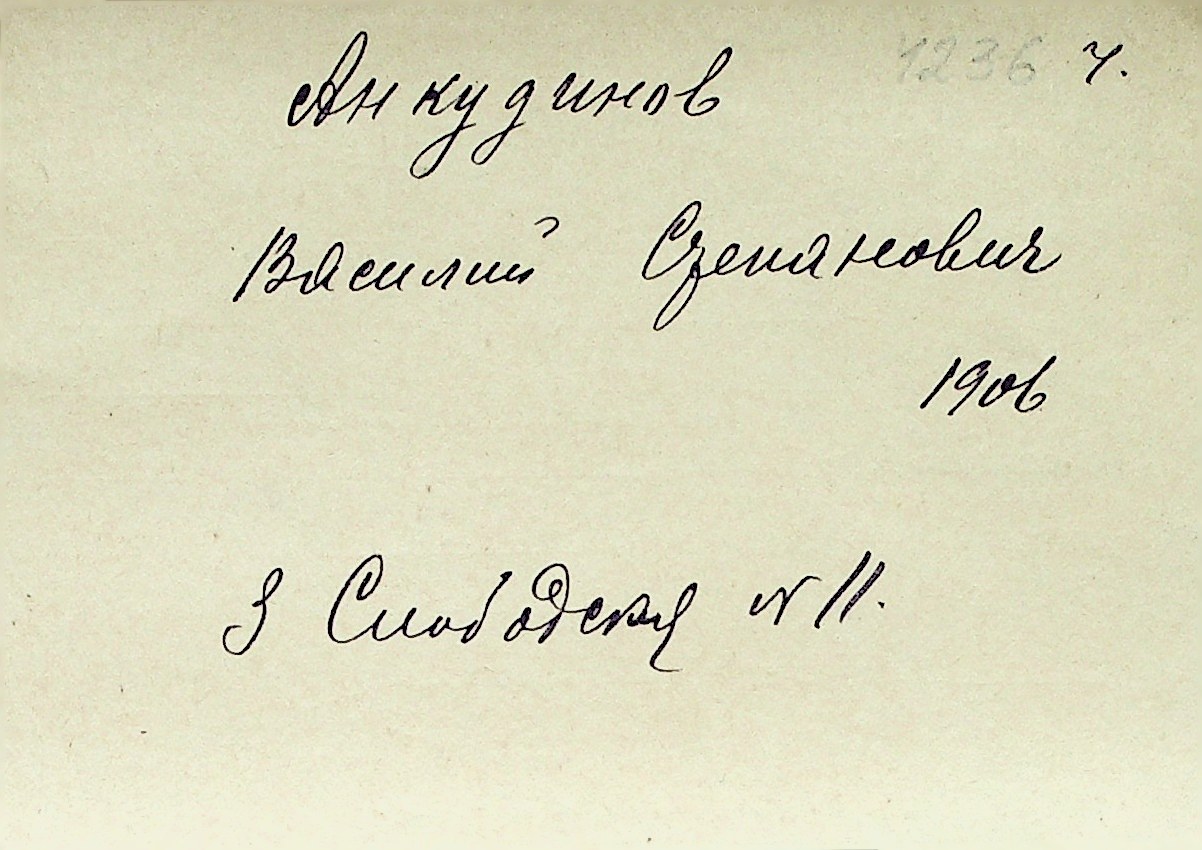 Анкудинов 1236 ч.
Василий Степанович
1906
3 Слободская № 11.